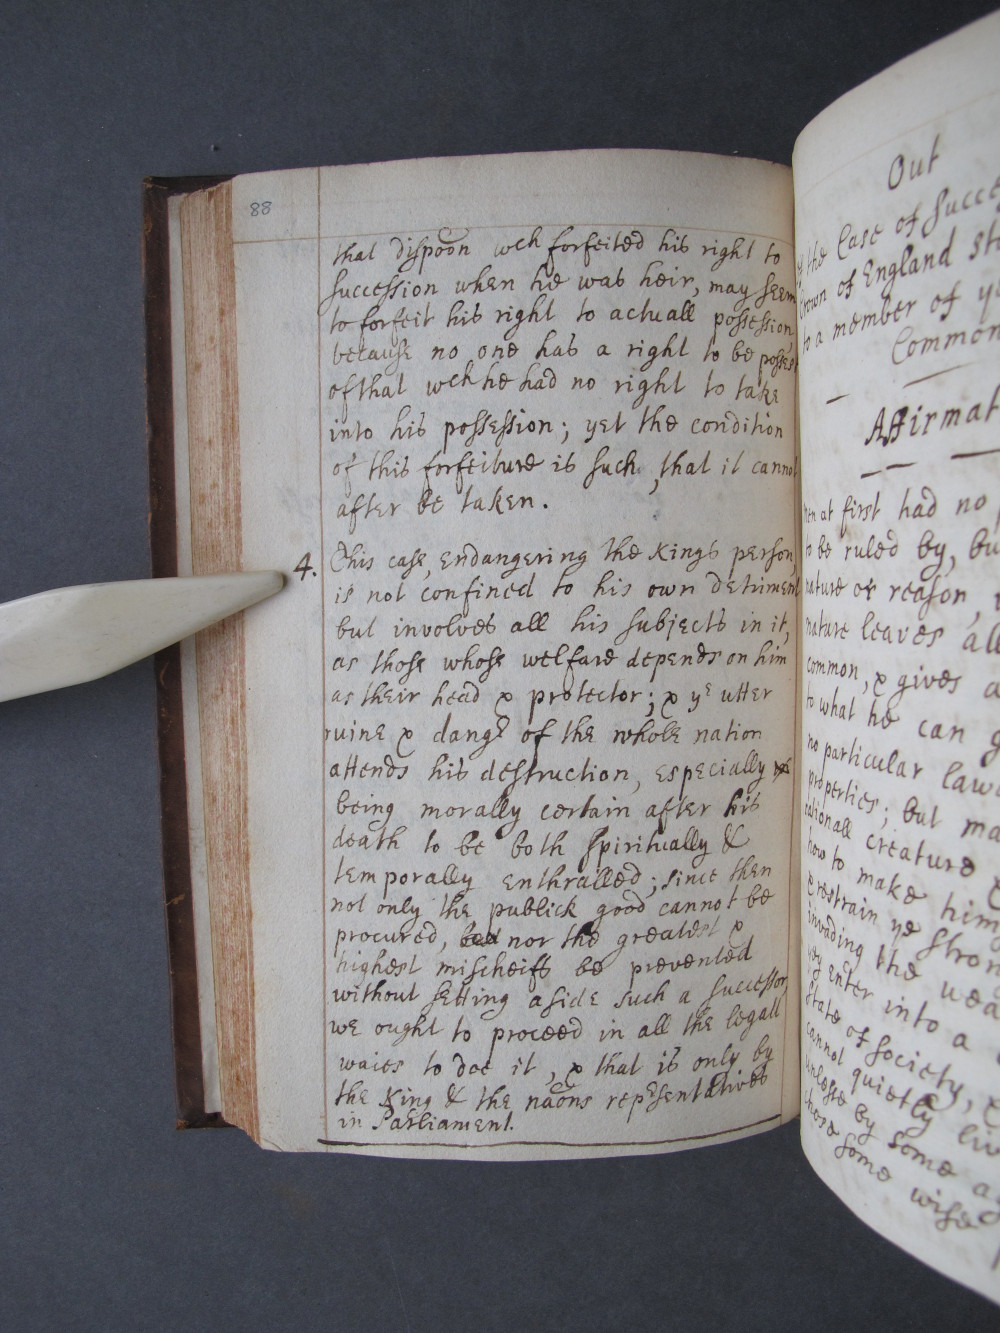 88
that dispoõn wch forfeited his right to
succession when he was heir, may seem
to forfeit his right to actuall possession,
because no one has a right to be possest
of that wch he had no right to take
into his possession; yet the condition
of this forfeiture is such, that it cannot
after be taken.
4. This case, endangering the Kings person,
is not confined to his own detriment
but involves all his subjects in it,
as those whose welfare depends on him
as their head & protector; & ye utter
ruine & dangr of the whole nation
attends his destruction, especially
being morally certain after his
death to be both spiritually &
temporally enthralled; since then
not only the publick good cannot be
procured, nor the greatest &
highest mischeifs be prevented
without setting aside such a successor,
we ought to proceed in all the legall
waies to doe it, & that is only by
the King & the naõns repesentatives
in Parliament.
Out
the Case of Succe
Crown of England st
to a member of ye
Common
Affirmat
Men at first had no
to be ruled by, bu
nature or reason,
nature leaves all
common, & gives a
to what he can g
no particular laws
properties; but ma
rationall creature
how to make him
restrain ye stron
invading the wea
yy enter into a
state of society,
cannot quietly liv
unlesse by some a
these some wise